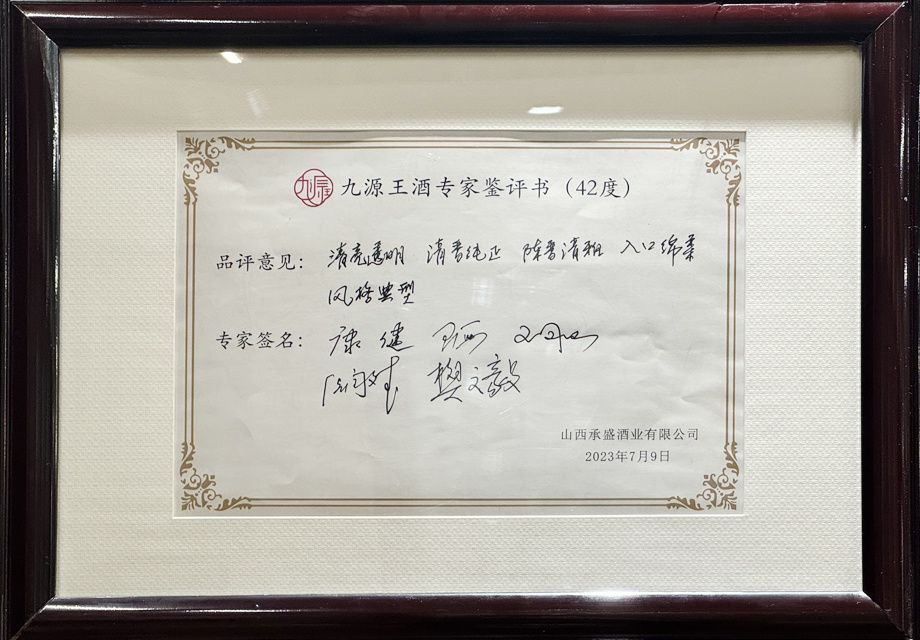 九源 九源王酒专家鉴评书（42度）
品评意见： 清亮透明 清香纯正 陈香清雅 入口绵柔
风格典型
专家签名： 康健
樊文毅
山西承盛酒业有限公司
2023年7月9日